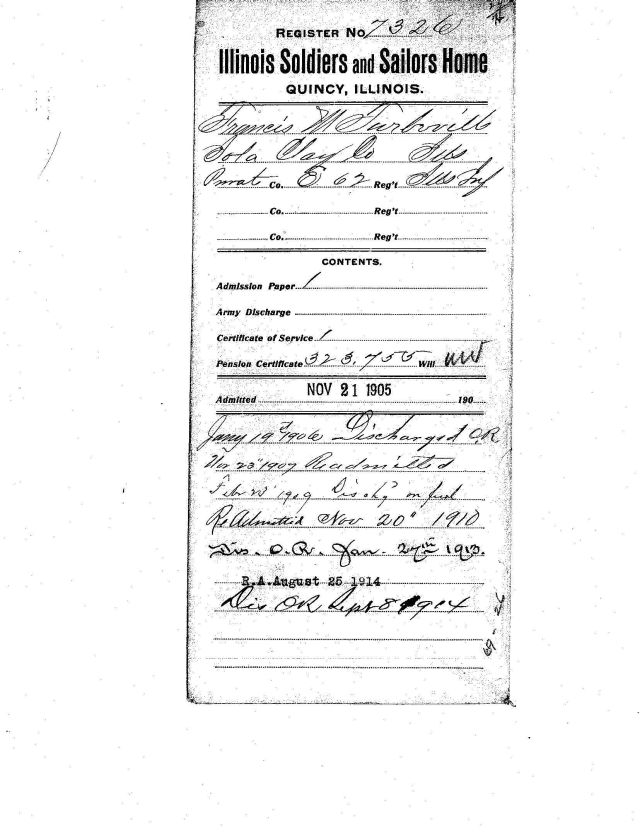 REGISTER No 7326
Illinois Soldiers and Sailors Home
QUINCY, ILLINOIS.
Francis M Turbville
Iola Clay Co Ills
Privat Co. E 62 Reg't Ills Inf
Co. Reg't
Co. Reg't
CONTENTS.
Admission Paper 1
Army Discharge
Certificate of Service 1
Pension Certificate 323,755 Will
NOV 21 1905
Admitted 190
Jany 19th 1906 Discharged O,R
Nov 23" 1907 Readmitted
Feby 1909 Disch'g on furl
Re Admitted Nov 20" 1910
Dis. O.R. Jan. 27th 1913.
R.A. August 25 1914
Dis OR Sept 8 1914